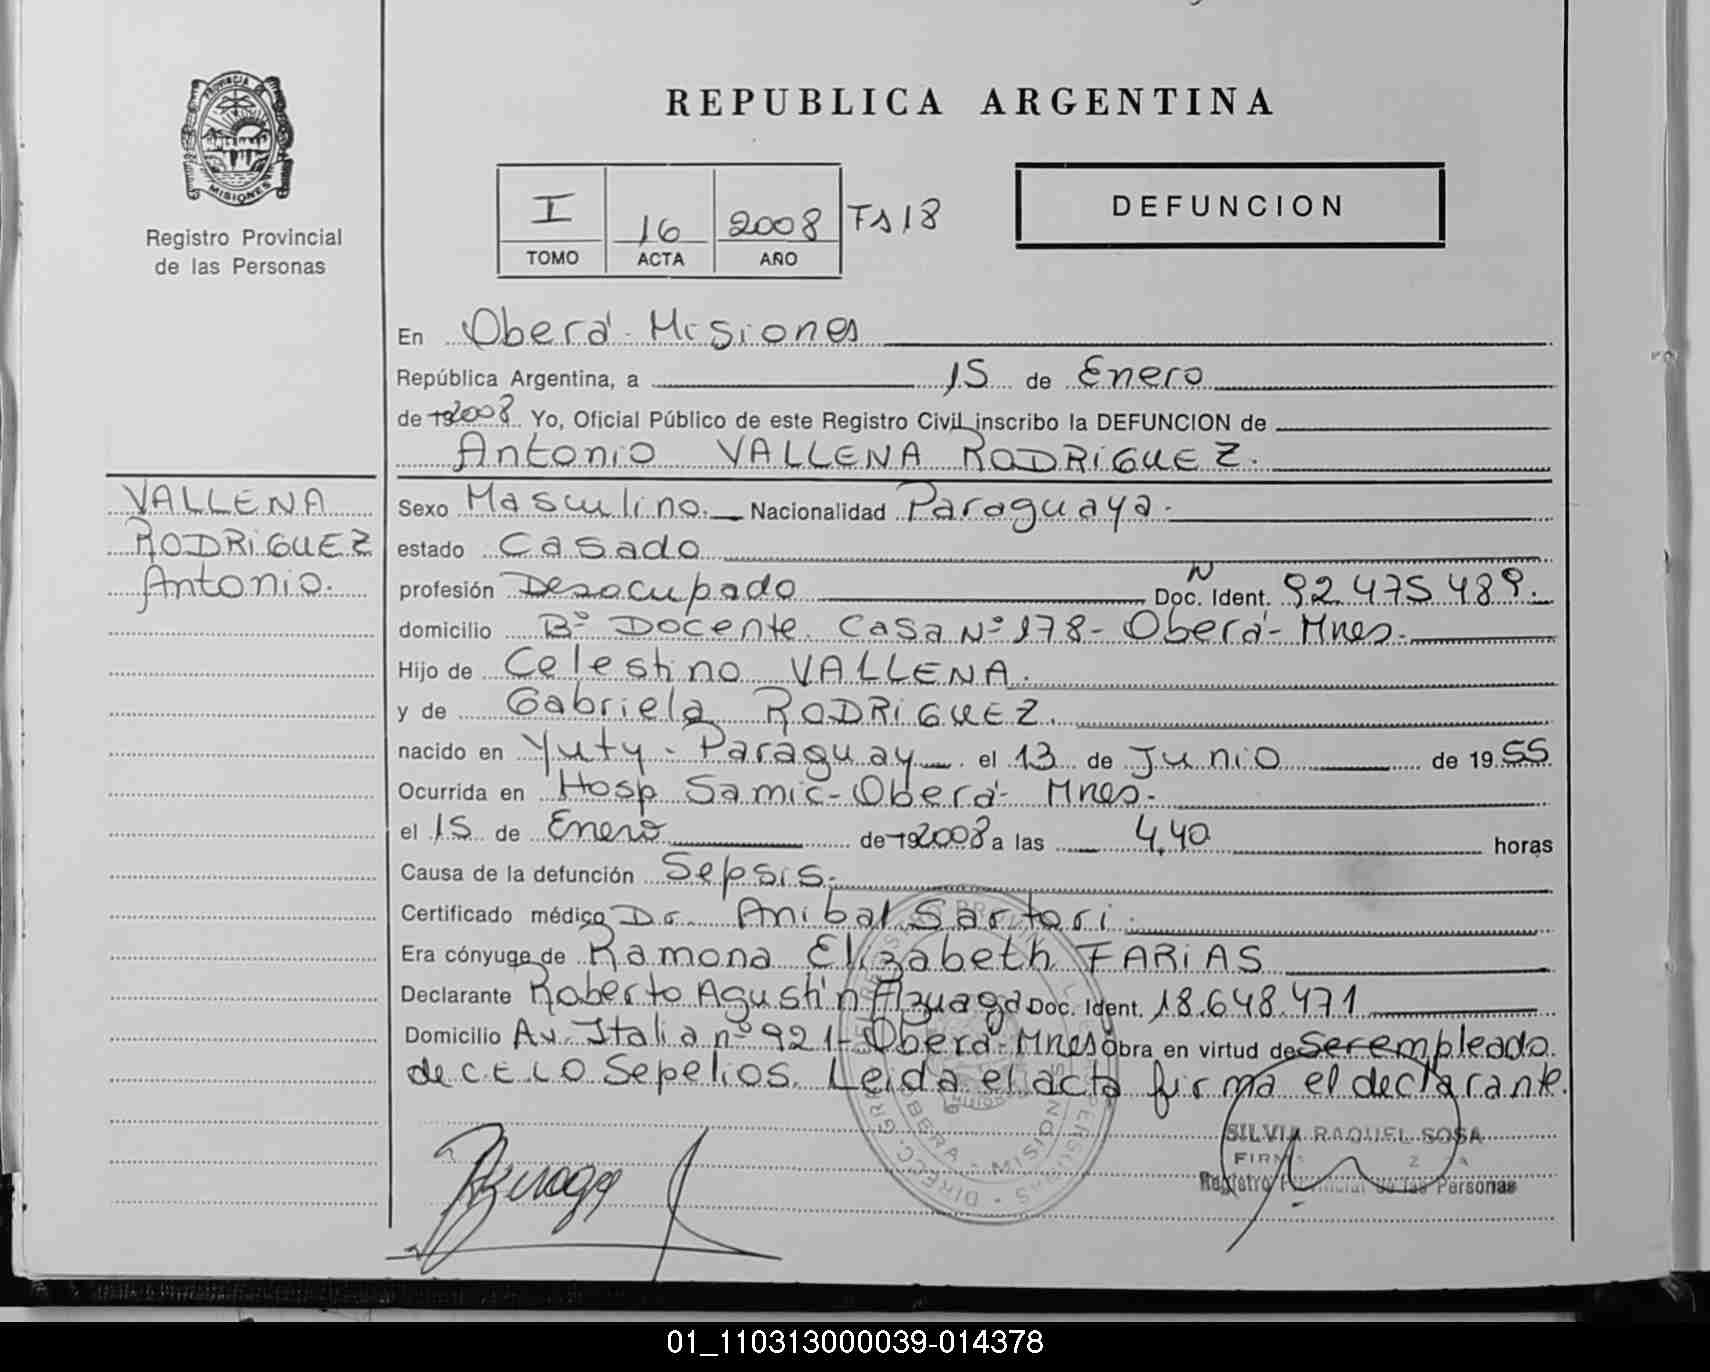 PROVINCIA DE
MISIONES
Registro Provincial
de las Personas
REPUBLICA ARGENTINA
I 16 2008 Fs 18
TOMO ACTA AÑO
DEFUNCION
En Oberá - Misiones
República Argentina, a 15 de Enero
de 19 2008 Yo, Oficial Público de este Registro Civil inscribo la DEFUNCION de
Antonio VALLENA RODRIGUEZ.
VALLENA
RODRIGUEZ
Antonio.
Sexo Masculino. Nacionalidad Paraguaya.
estado Casado
profesión Desocupado Doc. Ident. N 92.475.489.
domicilio Bº Docente Casa Nº 178 - Oberá - Mnes.
Hijo de Celestino VALLENA.
y de Gabriela RODRIGUEZ.
nacido en Yuty - Paraguay el 13 de Junio de 1955
Ocurrida en Hosp Samic - Oberá - Mnes.
el 15 de Enero de 19 2008 a las 4,40 horas
Causa de la defunción Sepsis.
Certificado médico Dr. Anibal Sartori.
Era cónyuge de Ramona Elizabeth FARIAS
Declarante Roberto Agustín Azuaga Doc. Ident. 18.648.471
Domicilio Av. Italia nº 921 - Oberá - Mnes Obra en virtud de Ser empleado
de C.E.L.O Sepelios. Leida el acta firma el declarante.
SILVIA RAQUEL SOSA
Registro Provincial de las Personas
OBERA - MISIONES
01_110313000039-014378